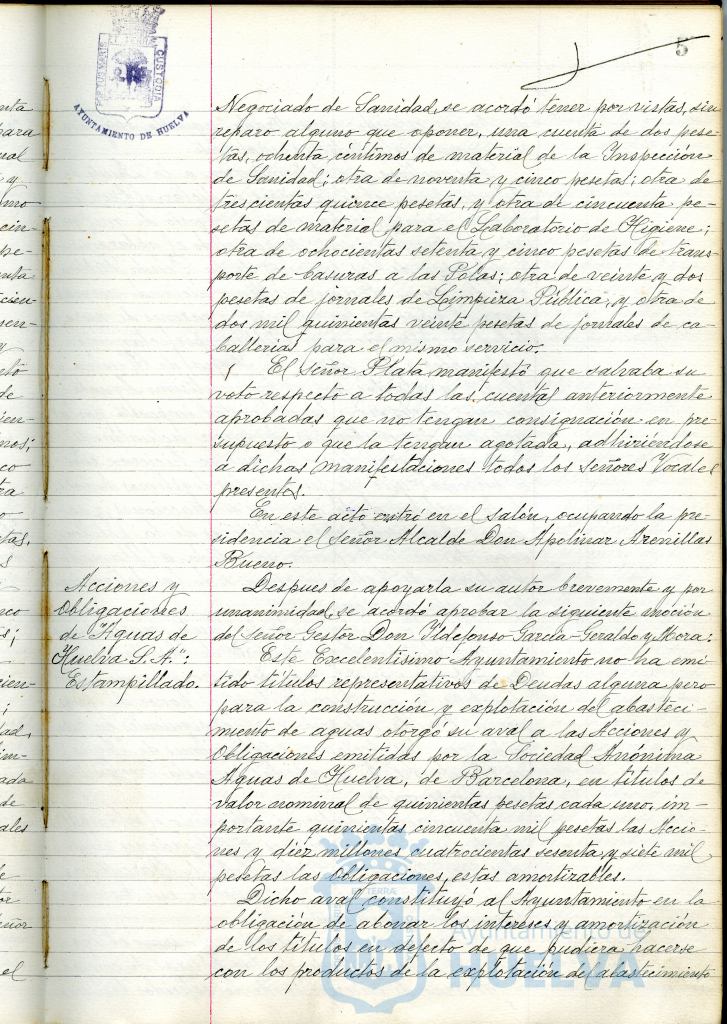 5
PORTUS MARIS
CUSTODIA
AYUNTAMIENTO DE HUELVA
Negociado de Sanidad, se acordó tener por vistas, sin
reparo alguno que oponer, una cuenta de dos pese-
tas, ochenta céntimos de material de la Inspección
de Sanidad; otra de noventa y cinco pesetas; otra de
trescientas quince pesetas, y otra de cincuenta pe-
setas de material para el Laboratorio de Higiene;
otra de ochocientas setenta y cinco pesetas de trans-
porte de basuras a las Islas; otra de veinte y dos
pesetas de jornales de Limpieza Pública, y otra de
dos mil quinientas veinte pesetas de jornales de ca-
ballerías para el mismo servicio.
El Señor Plata manifestó que salvaba su
voto respecto a todas las cuentas anteriormente
aprobadas que no tengan consignación en pre-
supuesto o que la tengan agotada, adhiriéndose
a dichas manifestaciones todos los señores Vocales
presentes.
En este acto entró en el salón, ocupando la pre-
sidencia el Señor Alcalde Don Apolinar Arenillas
Bueno.
Acciones y
Obligaciones
de "Aguas de
Huelva S.A.":
Estampillado.
Despues de apoyarla su autor brevemente y por
unanimidad, se acordó aprobar la siguiente moción
del Señor Gestor Don Ildefonso García-Geraldo y Mora:
Este Excelentísimo Ayuntamiento no ha emi-
tido títulos representativos de Deudas alguna pero
para la construcción y explotación del abasteci-
miento de aguas otorgó su aval a las Acciones y
Obligaciones emitidas por la Sociedad Anónima
Aguas de Huelva, de Barcelona, en títulos de
valor nominal de quinientas pesetas cada uno, im-
portante quinientas cincuenta mil pesetas las Accio-
nes y diez millones cuatrocientas sesenta y siete mil
pesetas las obligaciones, estas amortizables.
Dicho aval constituyó al Ayuntamiento en la
obligación de abonar los intereses y amortización
de los títulos en defecto de que pudiera hacerse
con los productos de la explotación del abastecimiento
Ayuntamiento de
HUELVA